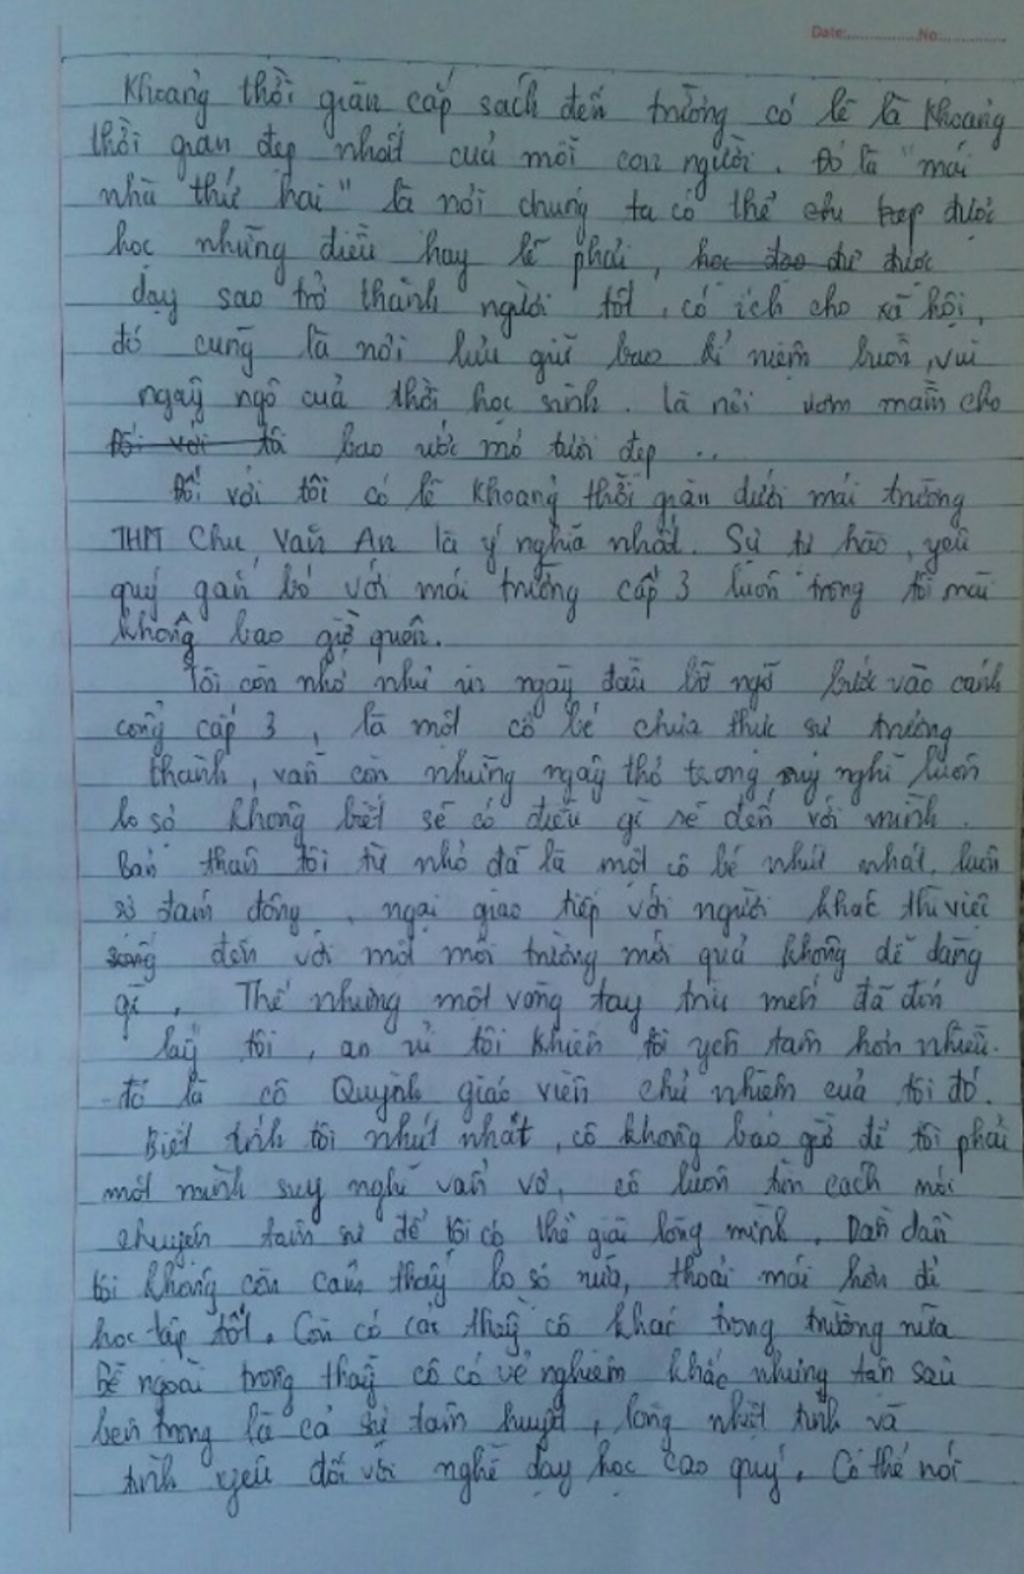 Date: No.
Khoảng thời gian cắp sách đến trường có lẽ là khoảng
thời gian đẹp nhất của mỗi con người. Đó là "mái
nhà thứ hai" là nơi chúng ta có thể được
học những điều hay lẽ phải, học đạo được
dạy sao trở thành người tốt, có ích cho xã hội,
đó cũng là nơi lưu giữ bao kỉ niệm buồn, vui
ngây ngô của thời học sinh. là nơi ươm mầm cho
Đối với tôi bao ước mơ tươi đẹp ..
Đối với tôi có lẽ khoảng thời gian dưới mái trường
THPT Chu Văn An là ý nghĩa nhất. Sự tự hào, yêu
quý gắn bó với mái trường cấp 3 luôn trong tôi mãi
không bao giờ quên.
Tôi còn nhớ như in ngày đầu bỡ ngỡ bước vào cánh
cổng cấp 3, là một cô bé chưa thực sự trưởng
thành, vẫn còn những ngây thơ trong suy nghĩ luôn
lo sợ không biết sẽ có điều gì sẽ đến với mình.
Bản thân tôi từ nhỏ đã là một cô bé nhút nhát, luôn
sợ đám đông, ngại giao tiếp với người khác thì việc
sống đến với một môi trường mới quả không dễ dàng
gì. Thế nhưng một vòng tay trìu mến đã đón
lấy tôi, an ủi tôi khiến tôi yên tâm hơn nhiều.
- đó là cô Quỳnh giáo viên chủ nhiệm của tôi đó.
Biết tính tôi nhút nhát, cô không bao giờ để tôi phải
một mình suy nghĩ vẩn vơ, cô luôn tìm cách nói
chuyện tâm sự để tôi có thể giãi lòng mình. Dần dần
tôi không còn cảm thấy lo sợ nữa, thoải mái hơn để
học tập tốt. Còn có các thầy cô khác trong trường nữa
Bề ngoài trông thầy cô có vẻ nghiêm khắc nhưng tận sâu
bên trong là cả sự tâm huyết, lòng nhiệt tình và
tình yêu đối với nghề dạy học cao quý. Có thể nói